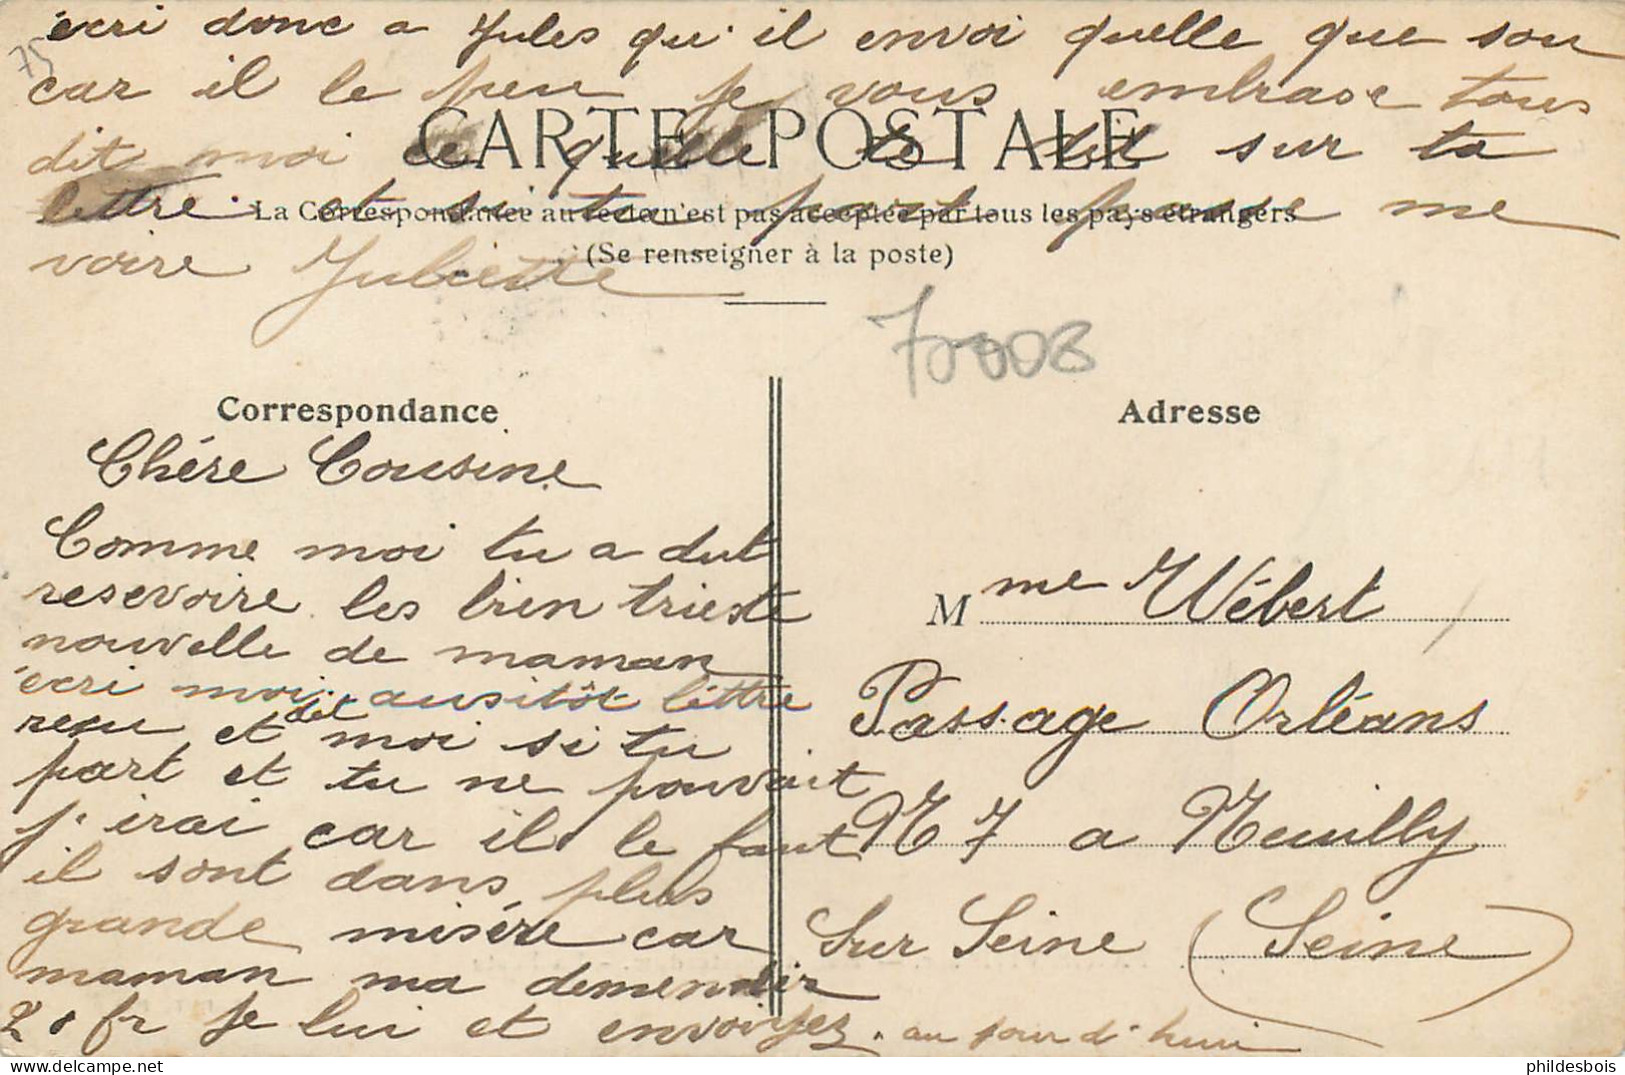 écri donc a Jules qu'il envoi quelle que sou
75
car il le peu je vous embrase tous
CARTE POSTALE
dit moi ce quelle te dit sur ta
lettre et si tu part passe me
La Correspondance au recto n'est pas acceptée par tous les pays étrangers
(Se renseigner à la poste)
voire Juliette
70008
Correspondance
Chére Cousine
Comme moi tu a dut
resevoire les bien trieste
nouvelle de maman
écri moi ausitôt lettre
reçu et dit moi si tu
part et tu ne pouvait
j'irai car il le faut
il sont dans plus
grande misére car
maman ma demender
20 fr je lui et envoiyez au jour d'huui
Adresse
Mme Wébert
Passage Orléans
N 7 a Neuilly
Sur Seine (Seine)
phildesbois